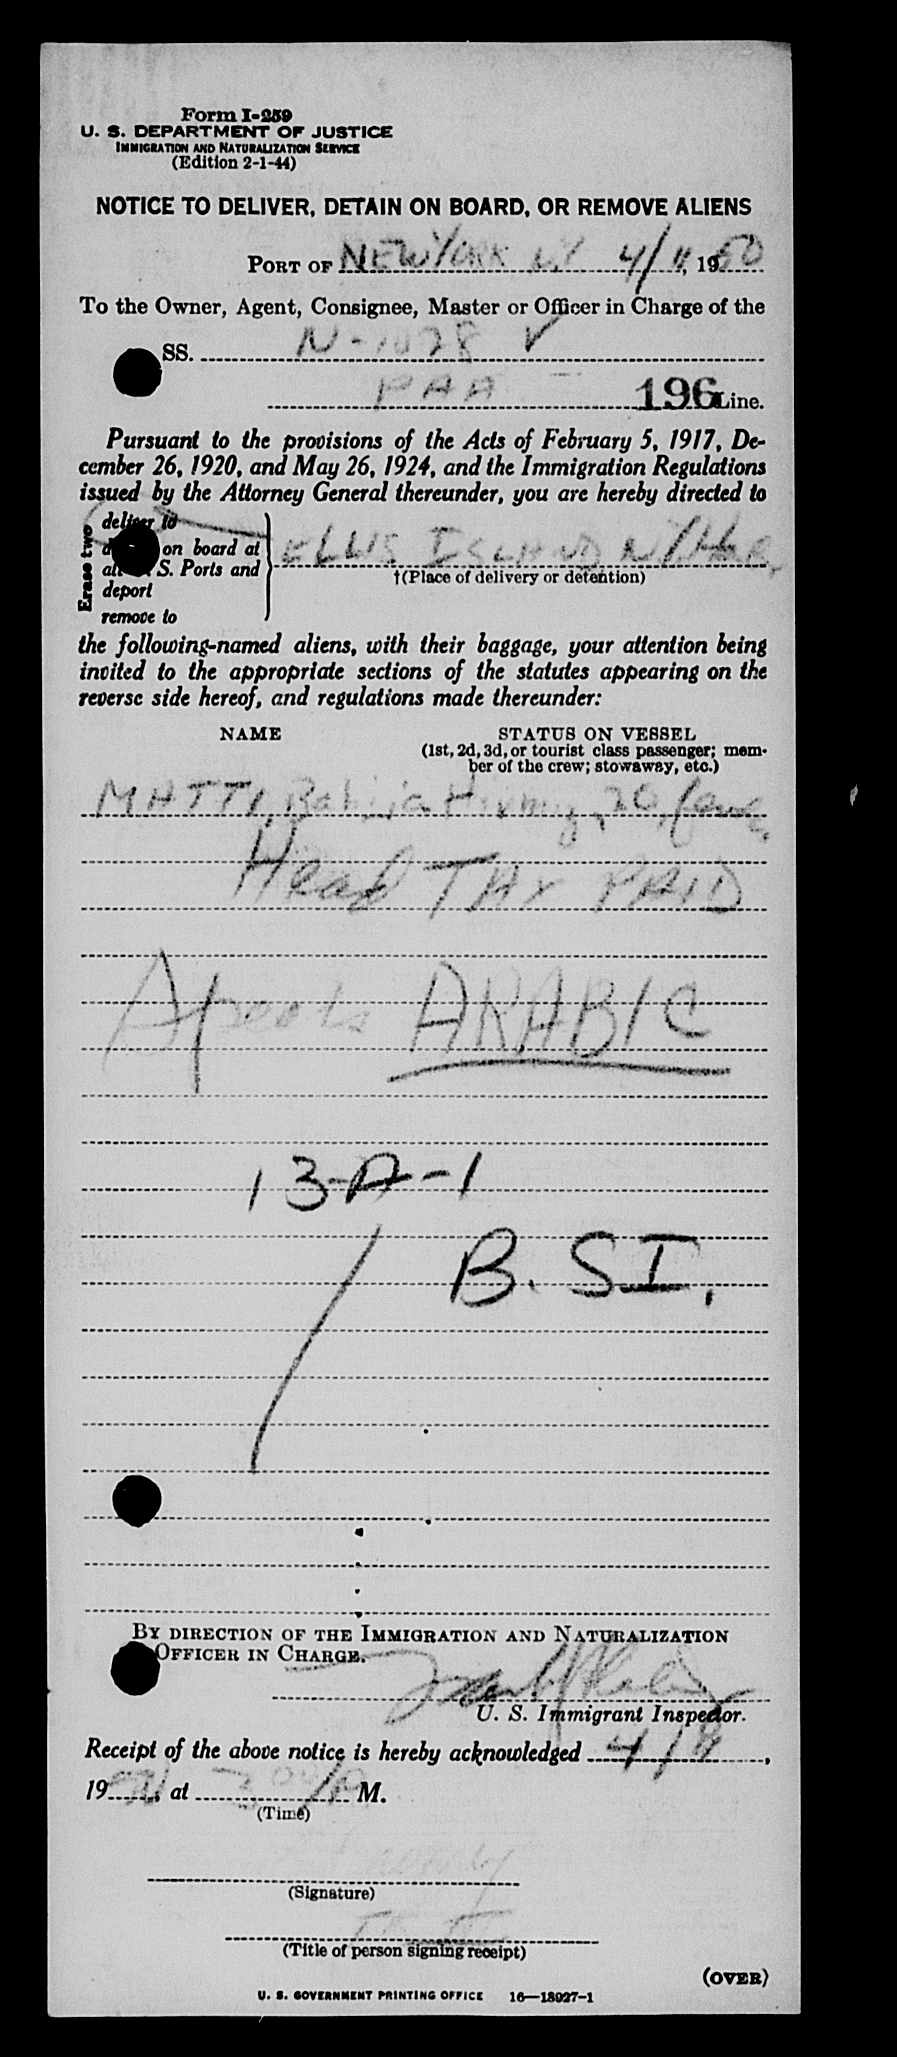 Form I-259
U. S. DEPARTMENT OF JUSTICE
IMMIGRATION AND NATURALIZATION SERVICE
(Edition 2-1-44)
NOTICE TO DELIVER, DETAIN ON BOARD, OR REMOVE ALIENS
PORT OF NEW YORK N.Y. 4/11, 1950
To the Owner, Agent, Consignee, Master or Officer in Charge of the
SS. N-1028 V
PAA 196 Line.
Pursuant to the provisions of the Acts of February 5, 1917, De-
cember 26, 1920, and May 26, 1924, and the Immigration Regulations
issued by the Attorney General thereunder, you are hereby directed to
Erase two
deliver to
on board at
S. Ports and
deport
remove to
ELLIS ISLAND N/Har.
†(Place of delivery or detention)
the following-named aliens, with their baggage, your attention being
invited to the appropriate sections of the statutes appearing on the
reverse side hereof, and regulations made thereunder:
NAME STATUS ON VESSEL
(1st, 2d, 3d, or tourist class passenger; mem-
ber of the crew; stowaway, etc.)
MATTI, 20,
Head TAX PAID
ARABIC
13-A-1
B. SI.
BY DIRECTION OF THE IMMIGRATION AND NATURALIZATION
OFFICER IN CHARGE.
U. S. Immigrant Inspector.
Receipt of the above notice is hereby acknowledged 4/11,
19, at M.
(Time)
(Signature)
(Title of person signing receipt)
(OVER)
U. S. GOVERNMENT PRINTING OFFICE 16—18927-1